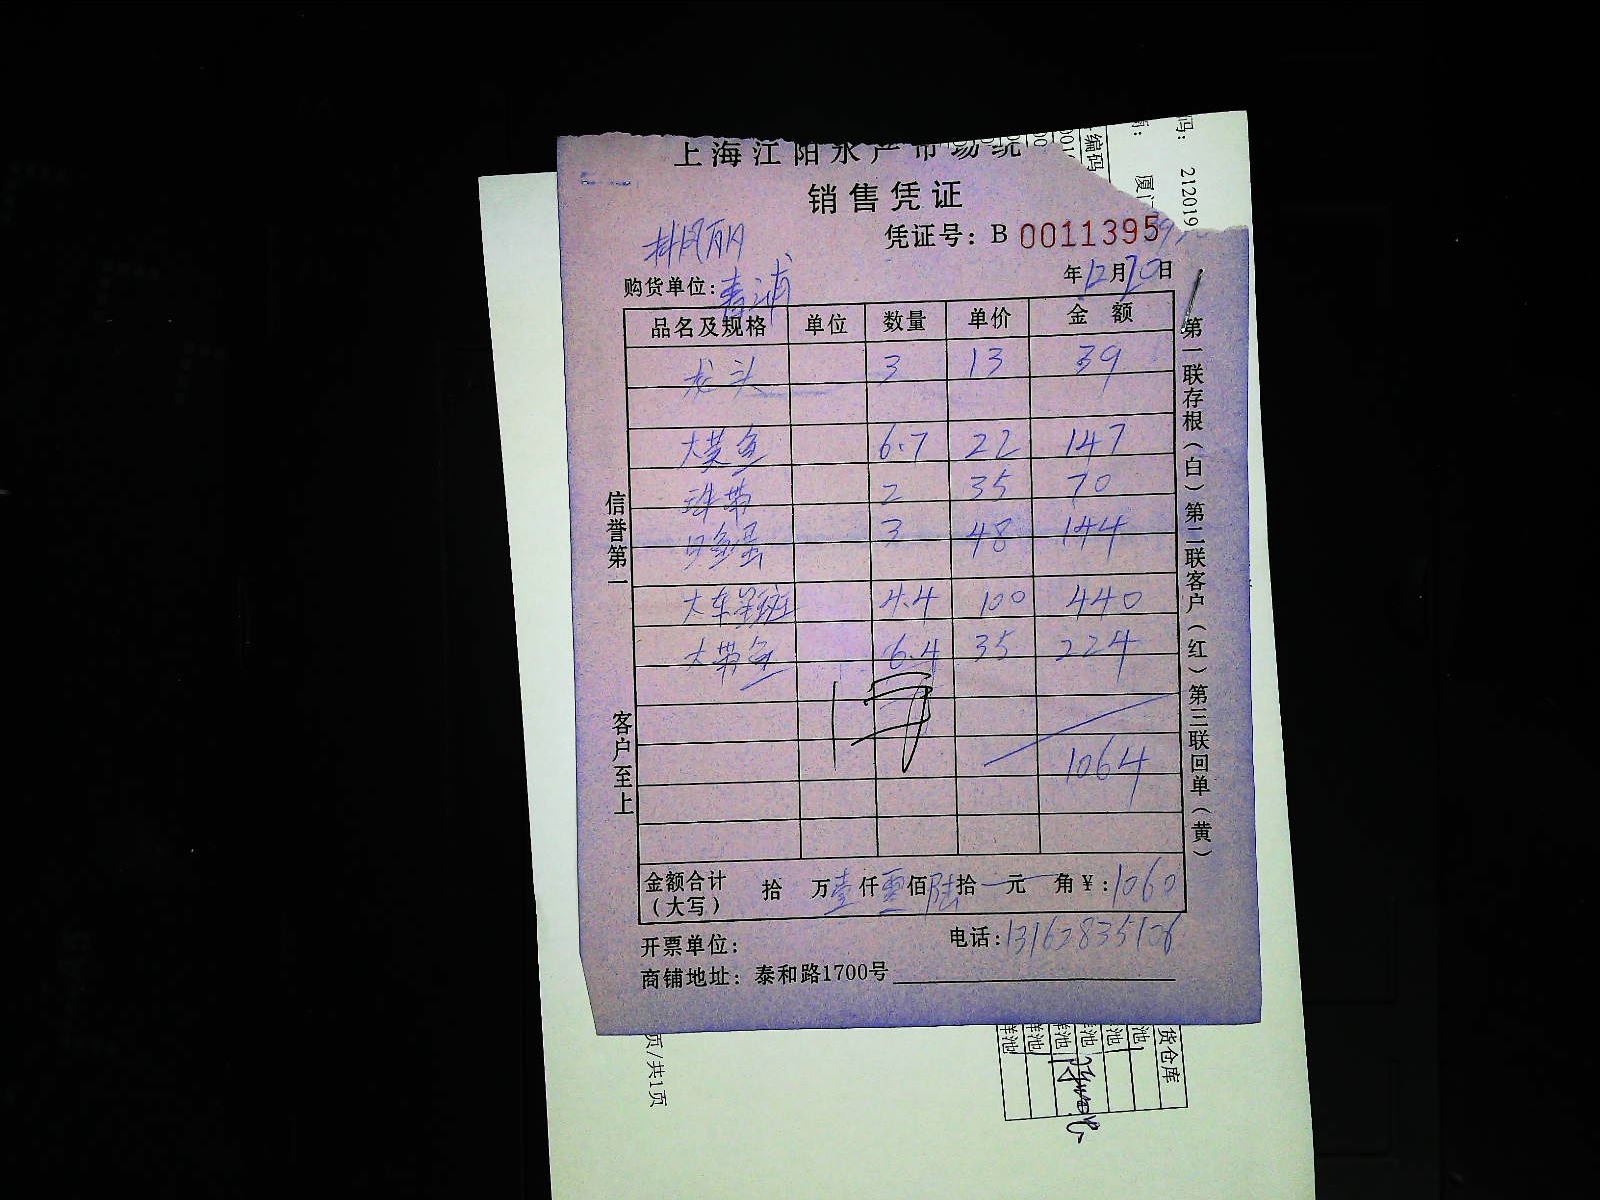 上海江阳水产市场统
销售凭证
凭证号：B 0011395
年12月20日
购货单位：青浦
品名及规格 单位 数量 单价 金 额
龙头 3 13 39
大黄鱼 6.7 22 147
珠带 2 35 70
3 48 144
大东星斑 4.4 100 440
大带鱼 6.4 35 224
1064
金额合计（大写） 拾 万壹仟零佰陆拾 元 角￥：1060
开票单位： 电话：13162835106
商铺地址：泰和路1700号
信誉第一
客户至上
第一联存根（白）第二联客户（红）第三联回单（黄）
码：212019
编码
页/共1页
货仓库